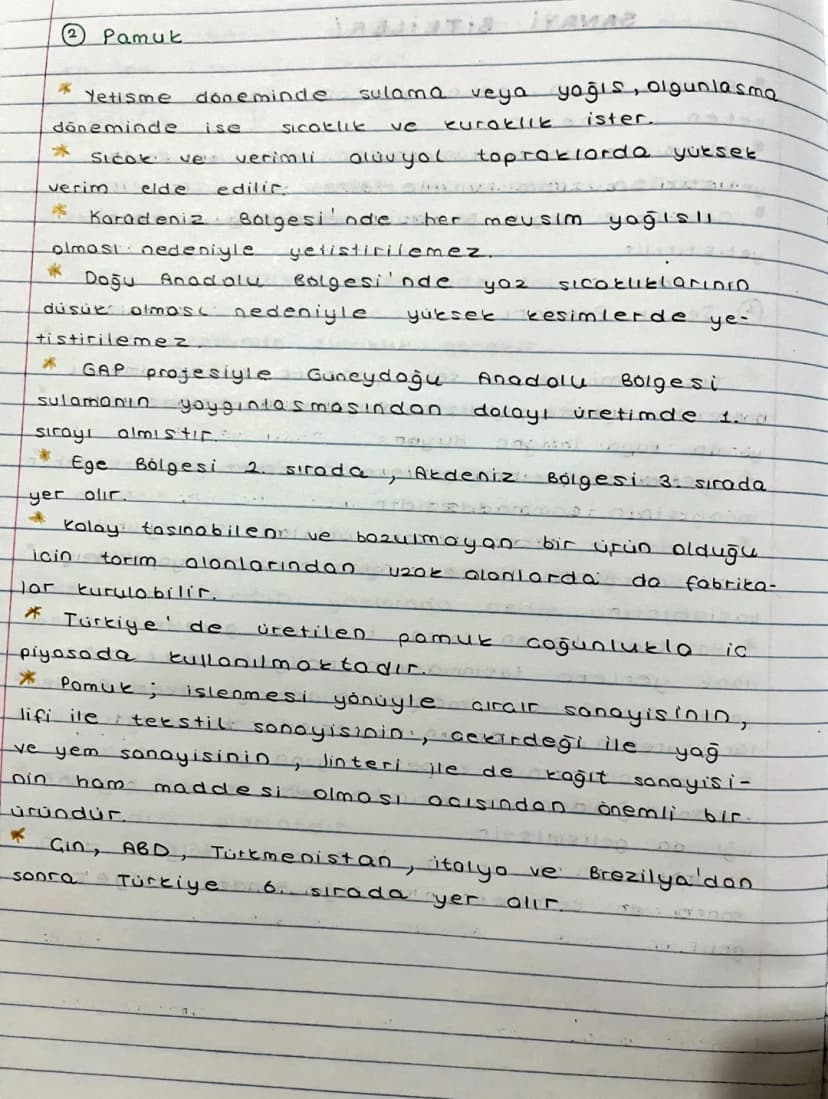 ② Pamuk
* Yetisme döneminde sulama veya yağıs, olgunlasma
döneminde ise sıcaklık ve kuraklık ister.
* Sıcak ve verimli alüvyal topraklarda yüksek
verim elde edilir.
* Karadeniz Bölgesi'nde her mevsim yağıslı
olması nedeniyle yetistirilemez.
* Doğu Anadolu Bölgesi'nde yaz sıcaklıklarının
düsük olması nedeniyle yüksek kesimlerde ye-
tistirilemez.
* GAP projesiyle Güneydoğu Anadolu Bölgesi
sulamanın yaygınlasmasından dolayı üretimde 1.
sırayı almıstır.
* Ege Bölgesi 2. sırada, Akdeniz Bölgesi 3. sırada
yer alır.
* Kolay tasınabilen ve bozulmayan bir ürün olduğu
icin tarım alanlarından uzak alanlarda da fabrika-
lar kurulabilir.
* Türkiye'de üretilen pamuk coğunlukla ic
piyasada kullanılmaktadır.
* Pamuk; islenmesi yönüyle cırcır sanayisinin,
lifi ile tekstil sanayisinin, cekirdeği ile yağ
ve yem sanayisinin, linteri ile de kağıt sanayisi-
nin ham maddesi olması acısından önemli bir
üründür.
* Cin, ABD, Türkmenistan, italya ve Brezilya'dan
sonra Türkiye 6. sırada yer alır.
SANAYİ BİTKİLERİ